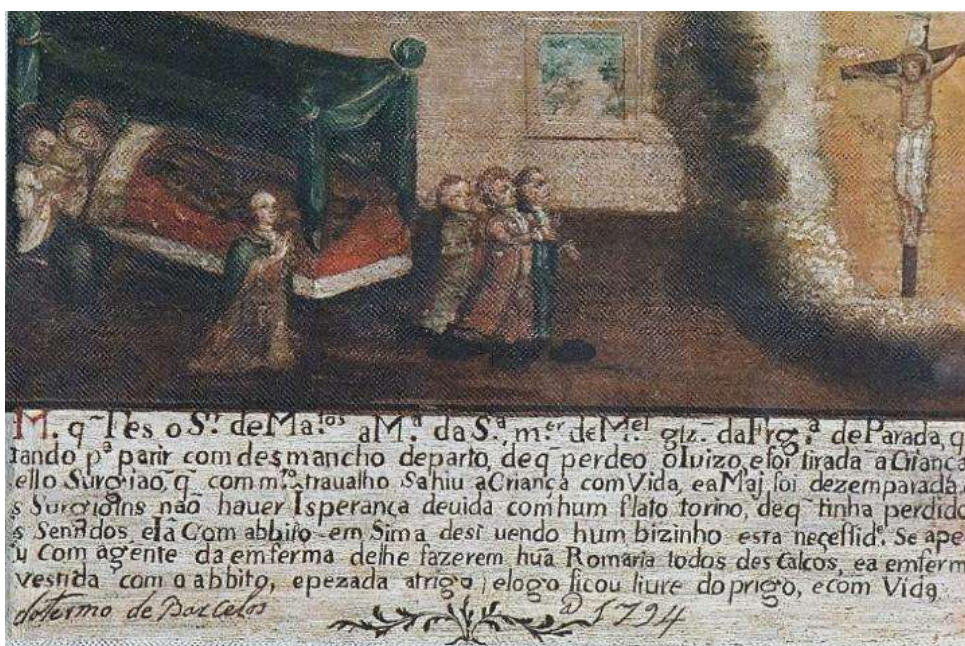 M. q̃ Fes o Sr. de Matos a Ma. da Sa. mer. de Mel. glz̃. da Frga. de Parada, q
tando pa. parir com desmancho departo, deq̃ perdeo oluizo, e foi tirada a Criança
ello Surgiaõ, q̃ com mto. traualho Sahiu aCriança com Vida, ea Maj foi dezemparada
s Surgioins naõ hauer Isperança deuida comhum flato torino, deq̃ tinha perdido
s Sentidos, e Ia Com abbito em Sima desi uendo hum bizinho esta neçessidе. Se ape
u Com agente da emferma delhe fazerem hũa Romaria todos des Calcos, ea emferm
vestida com o abbito, epezada atrigo, elogo ficou liure do prigo, ecom Vida.
do termo de Barcelos 1794